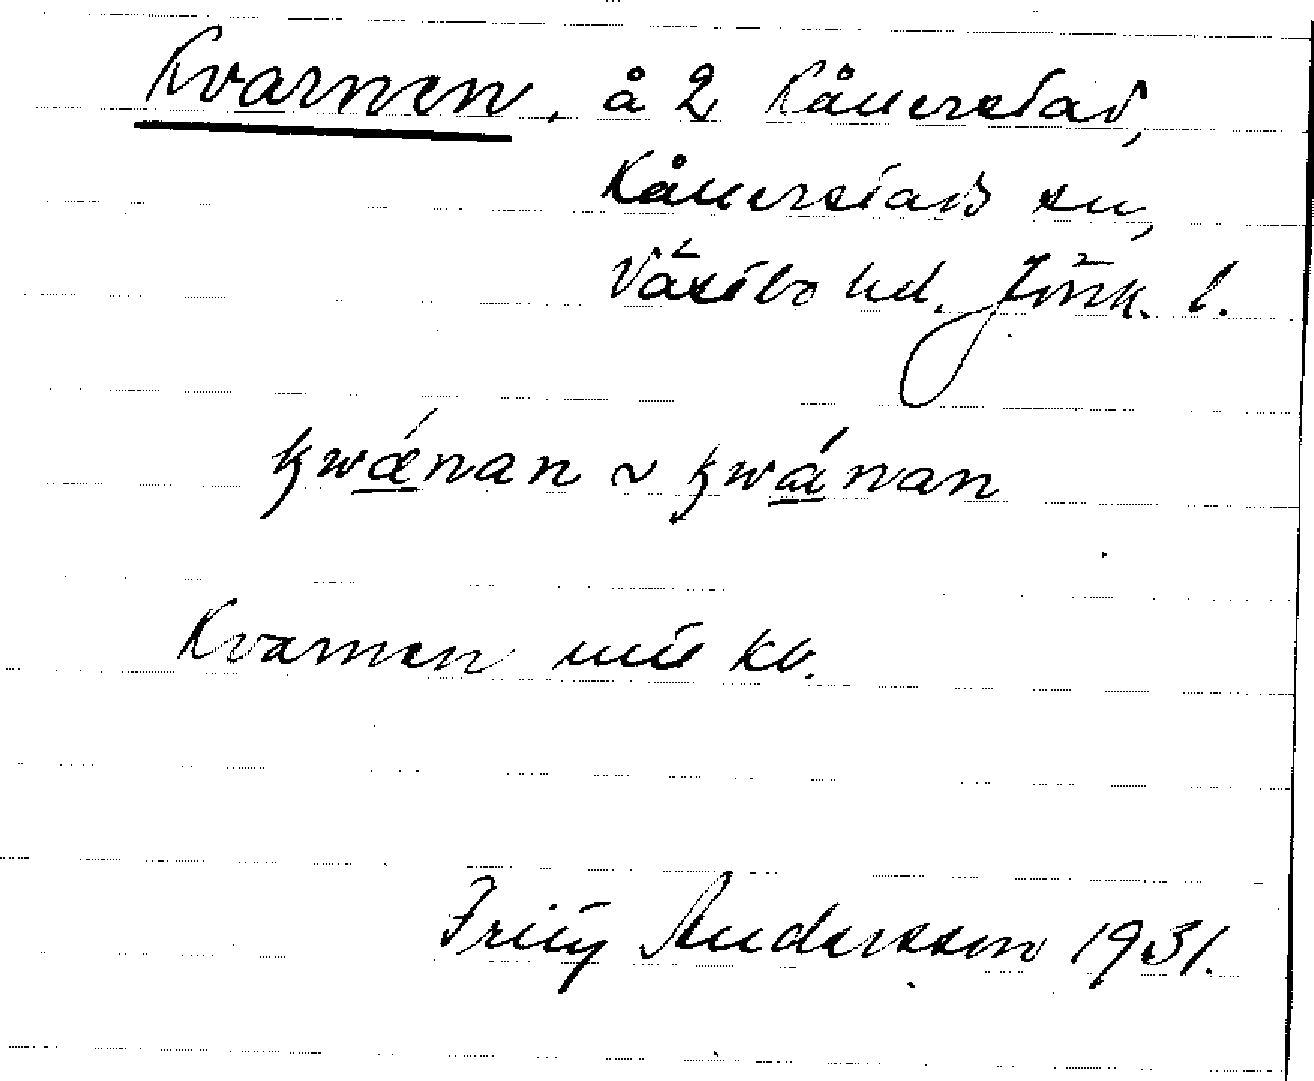 Kvarnen, å 2 Kånerstad,
Kånerstads sn,
Västbo hd. Jönk. l.
kwǽnan ~ kwánan
Kvarnen
Fritz Andersson 1931.